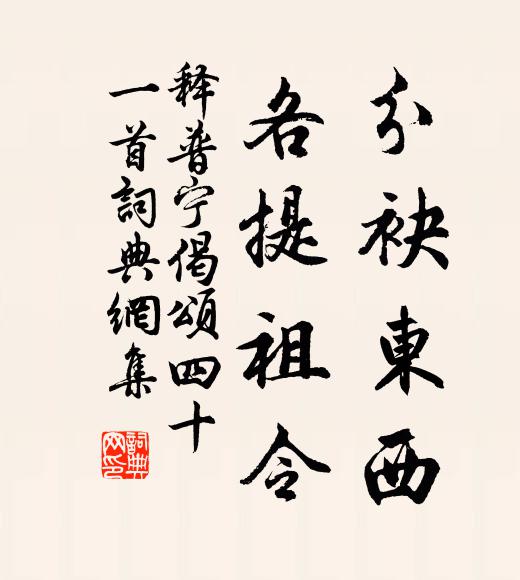 分袂東西
各提祖令
释普宁偈頌四十
一首詞典網集
詞典网印